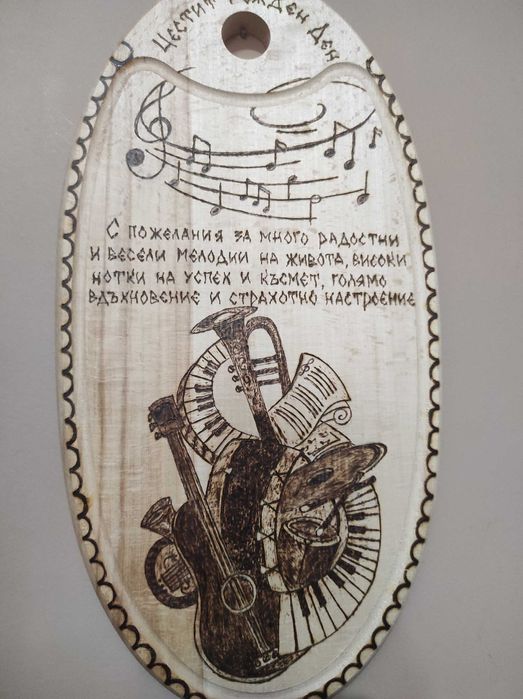 Честит Рожден Ден
С пожелания за много радостни
и весели мелодии на живота, високи
нотки на успех и късмет, голямо
вдъхновение и страхотно настроение